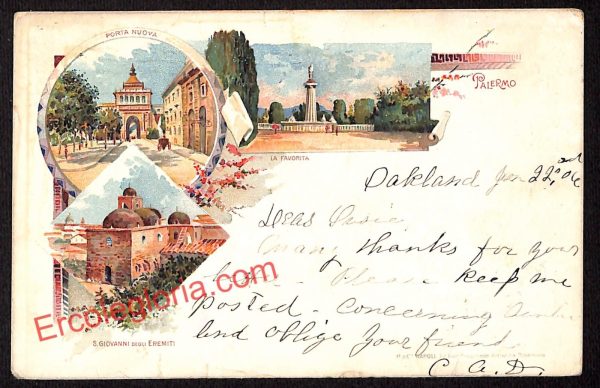 PORTA NUOVA
LA FAVORITA
PALERMO
S. GIOVANNI DEGLI EREMITI
Oakland Jan 22nd, 06
Dear
Many thanks for your
Please keep me
posted - Concerning
and oblige Your friend
C. A. D.
NAPOLI
Ercolegloria.com